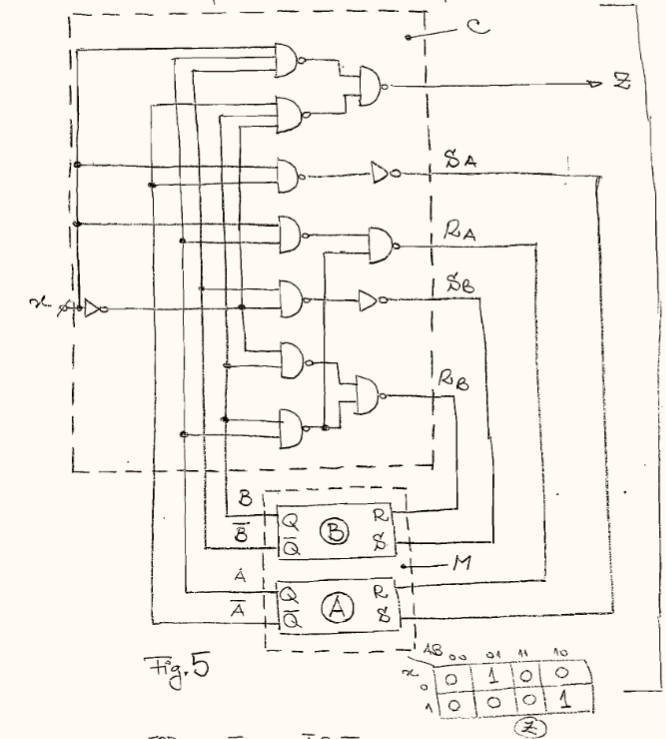 C
Z
SA
RA
x
SB
RB
B
B̅
Q
Q̅
B
R
S
M
A
A̅
Q
Q̅
A
R
S
Fig. 5
AB 00 01 11 10
x
0 0 1 0 0
1 0 0 0 1
Z